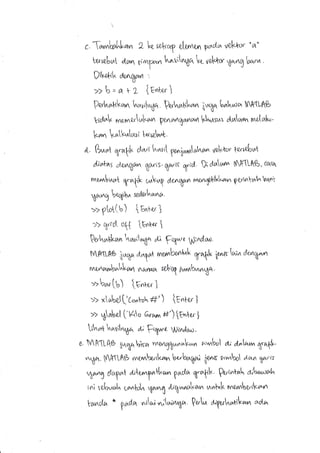 c. Tambahkan 2 ke setiap elemen pada vektor "a"
tersebut dan simpan hasilnya ke vektor yang baru.
Diketik dengan :
>> b = a + 2 {Enter}
Perhatikan hasilnya. Perhatikan juga bahwa MATLAB
tidak memerlukan penanganan khusus dalam melaku-
kan kalkulasi tersebut.
d. Buat grafik dari hasil penjumlahan vektor tersebut
diatas dengan garis-garis grid. Di dalam MATLAB, cara
membuat grafik cukup dengan mengetikkan perintah baris
yang begitu sederhana.
>> plot(b) {Enter}
>> grid off {Enter}
Perhatikan hasilnya di Figure Window.
MATLAB juga dapat membentuk grafik jenis lain dengan
menambahkan nama setiap sumbunya.
>> bar(b) {Enter}
>> xlabel('Contoh #') {Enter}
>> ylabel('Kilo Gram #') {Enter}
Lihat hasilnya di Figure Window.
e. MATLAB juga bisa menggunakan simbol di dalam grafik-
nya. MATLAB memberikan berbagai jenis simbol dan garis
yang dapat ditempatkan pada grafik. Perintah dibawah
ini sebuah contoh yang digunakan untuk memberikan
tanda * pada nilai-nilainya. Perlu diperhatikan ada